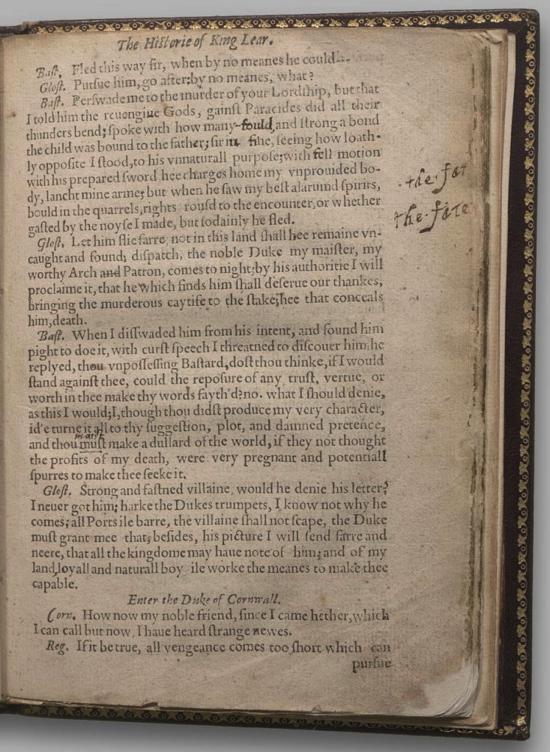 The Historie of King Lear.
Bast. Fled this way sir, when by no meanes he could--
Glost. Pursue him, go after, by no meanes, what?
Bast. Perswade me to the murder of your Lordship, but that
I told him the reuengiue Gods, gainst Paracides did all their
thunders bend, spoke with how many fould and strong a bond
the child was bound to the father; sir in fine, seeing how loath-
ly opposite I stood, to his vnnaturall purpose, with fell motion
with his prepared sword hee charges home my vnprouided bo-
dy, lancht mine arme; but when he saw my best alarumd spirits,
bould in the quarrels, rights rousd to the encounter, or whether
gasted by the noyse I made, but sodainly he fled.
Glost. Let him flie farre, not in this land shall hee remaine vn-
caught and found, dispatch, the noble Duke my maister, my
worthy Arch and Patron, comes to night, by his authoritie I will
proclaime it, that he which finds him shall deserue our thankes,
bringing the murderous caytife to the stake, hee that conceals
him, death.
Bast. When I disswaded him from his intent, and found him
pight to doe it, with curst speech I threatned to discouer him, he
replyed, thou vnpossessing Bastard, dost thou thinke, if I would
stand against thee, could the reposure of any trust, vertue, or
worth in thee make thy words fayth'd? no. what I should denie,
as this I would, I, though thou didst produce my very character,
id'e turne it all to thy suggestion, plot, and damned pretence,
and thou must make a dullard of the world, if they not thought
the profits of my death, were very pregnant and potentiall
spurres to make thee seeke it.
Glost. Strong and fastned villaine, would he denie his letter?
I neuer got him; harke the Dukes trumpets, I know not why he
comes; all Ports ile barre, the villaine shall not scape, the Duke
must grant mee that; besides, his picture I will send farre and
neere, that all the kingdome may haue note of him; and of my
land, loyall and naturall boy ile worke the meanes to make thee
capable.
Enter the Duke of Cornwall.
Corn. How now my noble friend, since I came hether, which
I can call but now, I haue heard strange newes.
Reg. If it be true, all vengeance comes too short which can
pursue
the
the